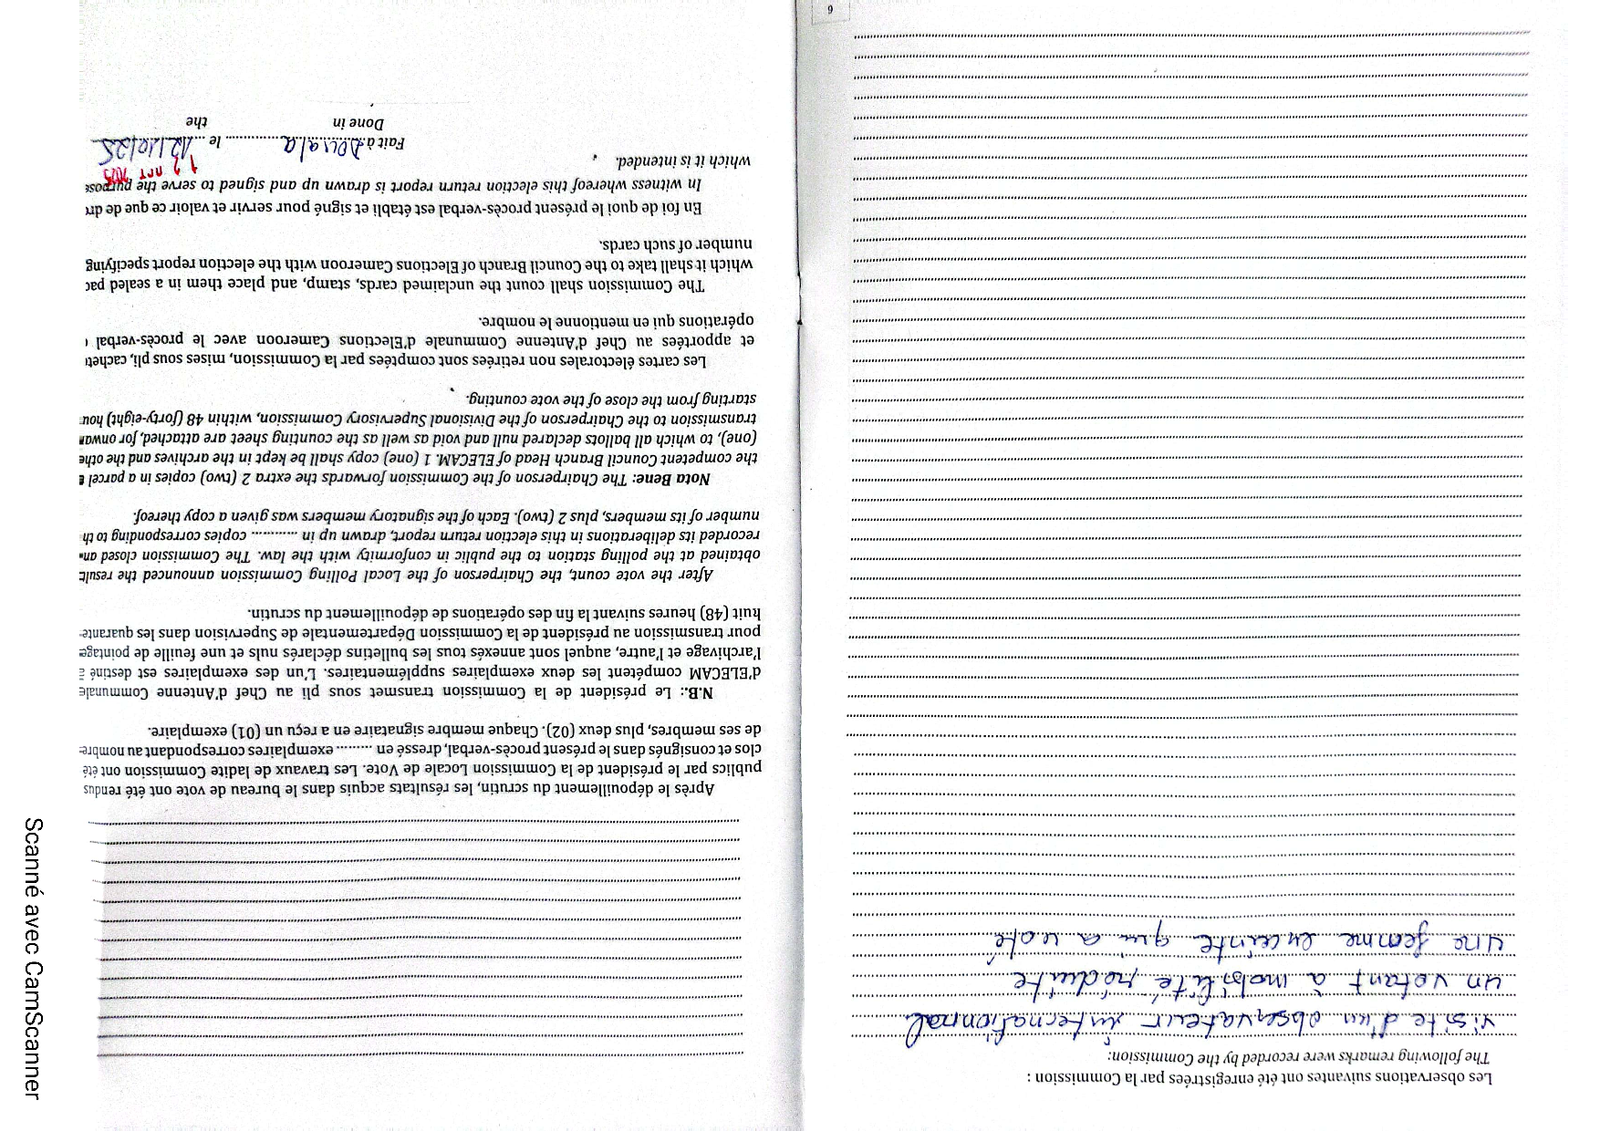 Les observations suivantes ont été enregistrées par la Commission :
The following remarks were recorded by the Commission:
visite d'un observateur international
un votant à mobilité réduite
une femme enceinte qui a voté
6
Après le dépouillement du scrutin, les résultats acquis dans le bureau de vote ont été rendus
publics par le président de la Commission Locale de Vote. Les travaux de ladite Commission ont été
clos et consignés dans le présent procès-verbal, dressé en ......... exemplaires correspondant au nombre
de ses membres, plus deux (02). Chaque membre signataire en a reçu un (01) exemplaire.
N.B.: Le président de la Commission transmet sous pli au Chef d'Antenne Communale
d'ELECAM compétent les deux exemplaires supplémentaires. L'un des exemplaires est destiné à
l'archivage et l'autre, auquel sont annexés tous les bulletins déclarés nuls et une feuille de pointage
pour transmission au président de la Commission Départementale de Supervision dans les quarante-
huit (48) heures suivant la fin des opérations de dépouillement du scrutin.
After the vote count, the Chairperson of the Local Polling Commission announced the result
obtained at the polling station to the public in conformity with the law. The Commission closed an
recorded its deliberations in this election return report, drawn up in ............ copies corresponding to th
number of its members, plus 2 (two). Each of the signatory members was given a copy thereof.
Nota Bene: The Chairperson of the Commission forwards the extra 2 (two) copies in a parcel
the competent Council Branch Head of ELECAM. 1 (one) copy shall be kept in the archives and the othe
(one), to which all ballots declared null and void as well as the counting sheet are attached, for onwar
transmission to the Chairperson of the Divisional Supervisory Commission, within 48 (forty-eight) hou
starting from the close of the vote counting.
Les cartes électorales non retirées sont comptées par la Commission, mises sous pli, cachet
et apportées au Chef d'Antenne Communale d'Elections Cameroon avec le procès-verbal
opérations qui en mentionne le nombre.
The Commission shall count the unclaimed cards, stamp, and place them in a sealed pac
which it shall take to the Council Branch of Elections Cameroon with the election report specifying
number of such cards.
En foi de quoi le présent procès-verbal est établi et signé pour servir et valoir ce que de dr
In witness whereof this election return report is drawn up and signed to serve the purpose
which it is intended.
Fait à Douala le 12/10/25
Done in the
Scanné avec CamScanner